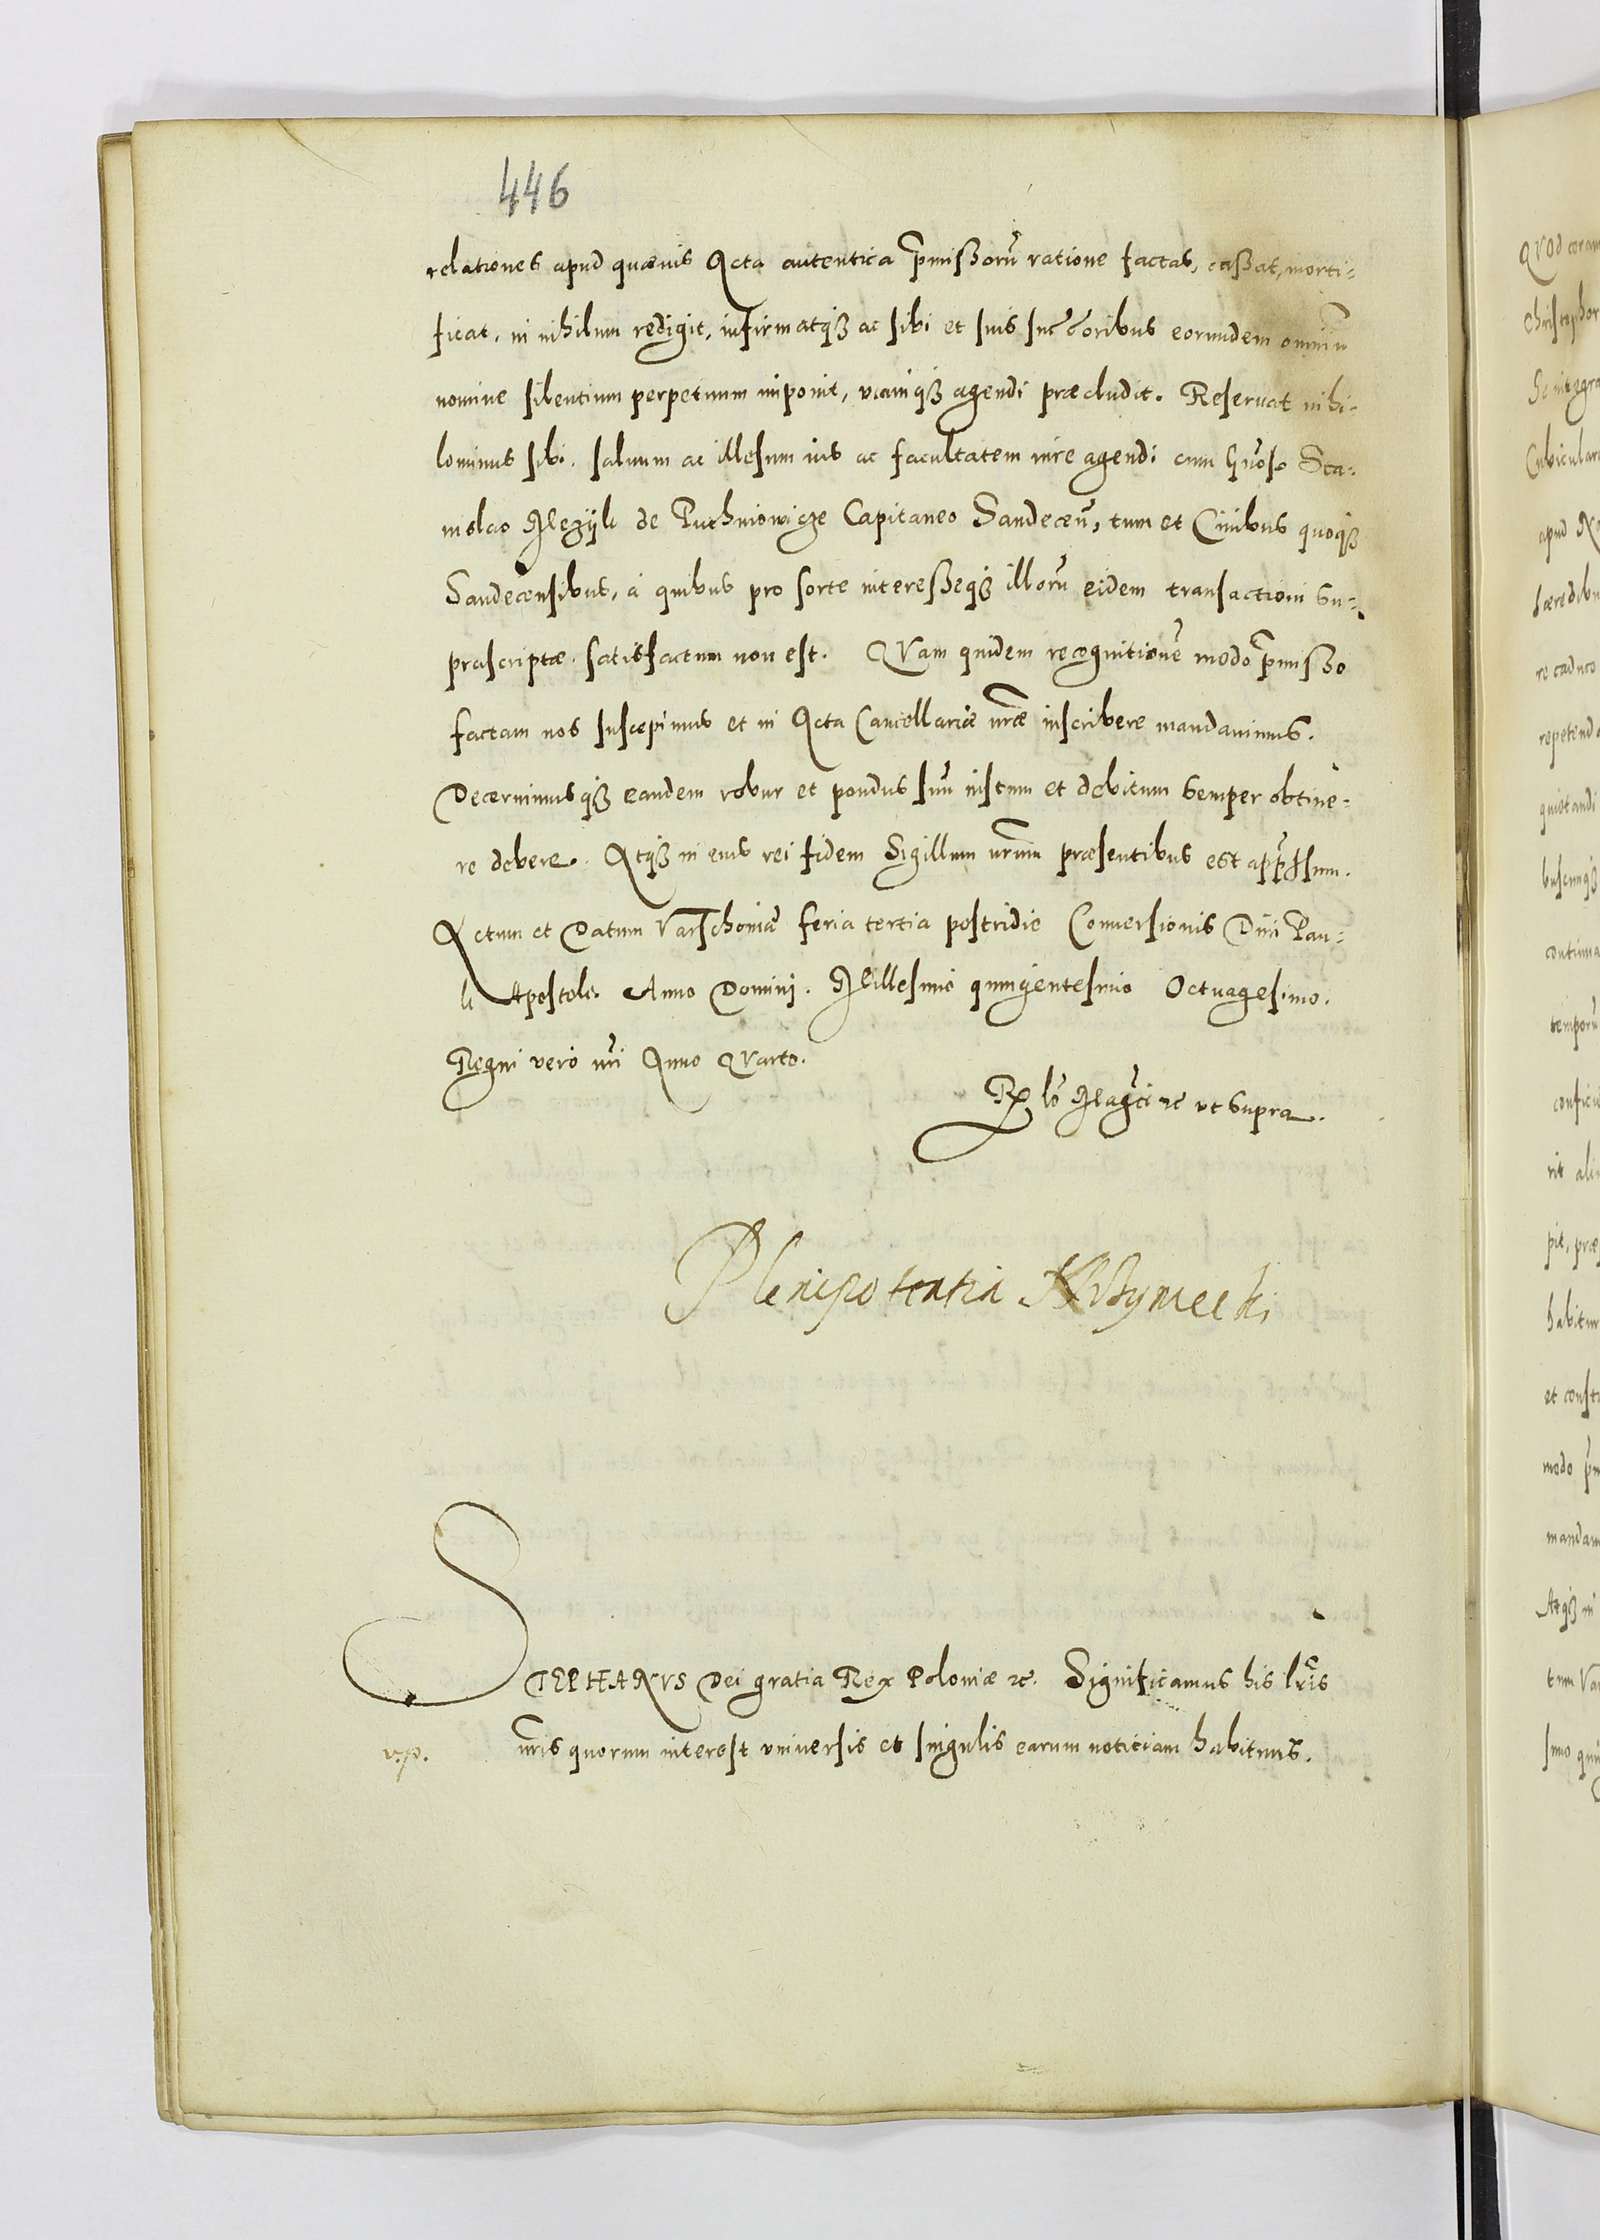 446
relationes apud quævis Acta autentica p̄missorū ratione factas, cassat, morti-
ficat, in nihilum redigit, infirmatq₃ ac sibi et suis succ̄oribus eorundem omniū
nomine silentium perpetuum imponit, viamq₃ agendi præcludit. Reservat nihi-
lominus sibi salvum ac illesum ius ac facultatem iure agendi cum Gn̄oso Sta-
nislao Mezÿk de Puchniowicze Capitaneo Sandecen̄, tum et Civibus quoq₃
Sandecensibus, à quibus pro sorte interesseq₃ illorū eidem transactioni Su-
prascriptæ satisfactum non est. QVam quidem recognitionē modo p̄misso
factam nos suscepimus et in Acta Cancellariæ nr̄æ inscribere mandavimus.
Decernimusq₃ eandem robur et pondus suū iustum et debitum Semper obtine-
re debere. Atq₃ in eius rei fidem Sigillum nr̄um præsentibus est app̄ssum.
Actum et Datum Varschoviæ feria tertia postridie Conversionis Divi Pau-
li Apostoli Anno Domini. Millesimo quingentesimo Octuagesimo.
Regni vero nr̄i Anno QVarto.
Rx lō Mag̃ci ꝛc ut Supra.
Plenipotentia
STEPHANVS Dei gratia Rex Poloniæ ꝛc. Significamus his lr̄is
nr̄is quorum interest universis et singulis earum noticiam habituris.
QVod coram
Christophor
apud
hæredibu
re caduco
repetend
quietandi
buscunq₃
continua
temporū
rit ali
pit, præ
habitur
et const
modo p̄m
mandam
Atq₃ in
tum Va
simo qui